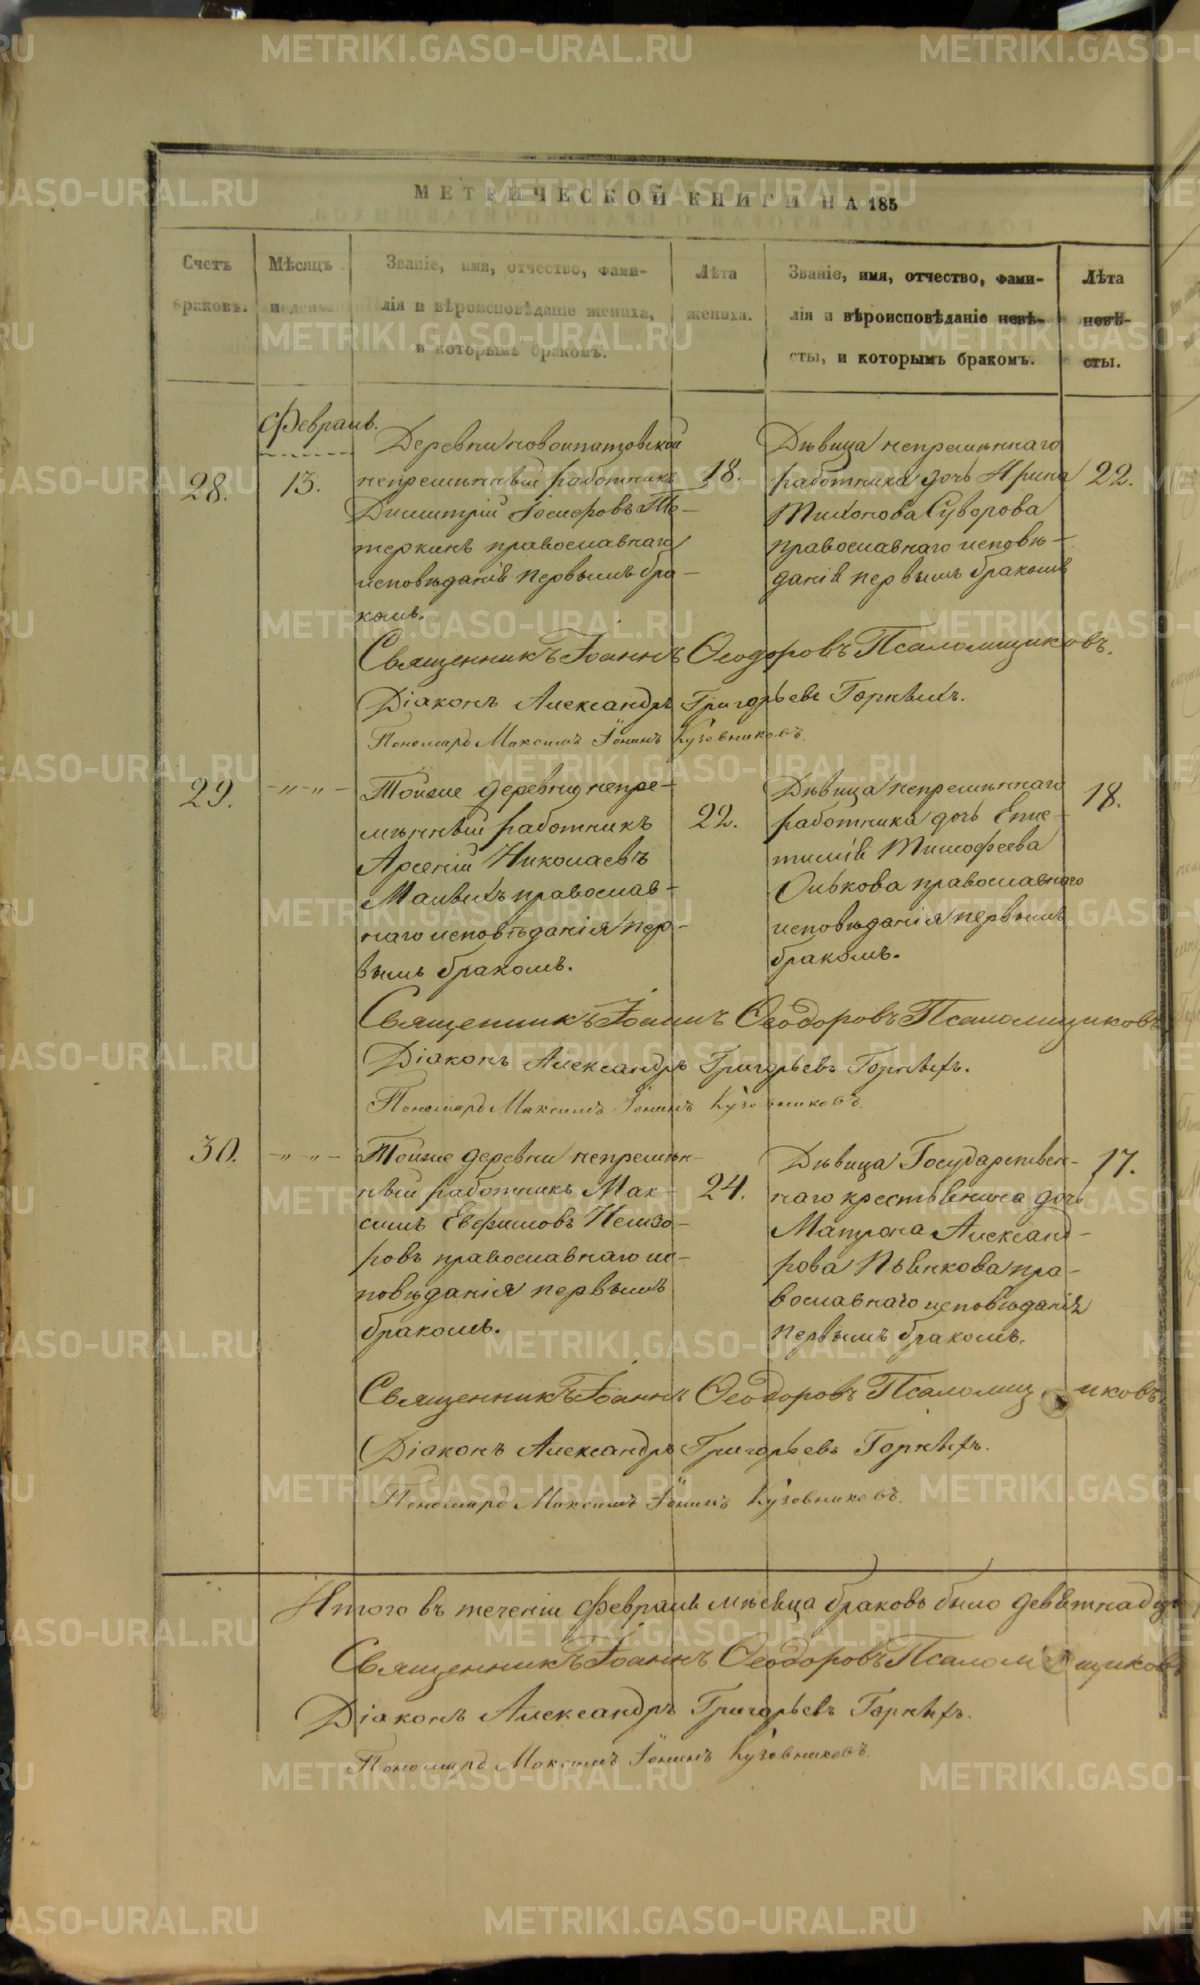 МЕТРИЧЕСКОЙ КНИГИ НА 185
Счетъ браковъ.
Мѣсяцъ и день.
Званіе, имя, отчество, фами-
лія и вѣроисповѣданіе жениха,
и которымъ бракомъ.
Лѣта
жениха.
Званіе, имя, отчество, фами-
лія и вѣроисповѣданіе невѣ-
сты, и которымъ бракомъ.
Лѣта
невѣ-
сты.
Февраль.
28.
13.
Деревни новоипатовской
непремѣнный работникъ
Димитрій Іосифовъ Те-
теркинъ православнаго
исповѣданія первымъ бра-
комъ.
18.
Дѣвица непремѣннаго
работника дочь Ирина
Тихонова Суворова
православнаго исповѣ-
данія первымъ бракомъ
22.
Священникъ Іоаннъ Ѳеодоровъ Псаломщиковъ.
Діаконъ Александръ Григорьевъ Горныхъ.
Пономарь Максимъ Іонинъ Кузовниковъ.
29.
-„-„-
Тойже деревни непре-
мѣнный работникъ
Арсеній Николаевъ
Малыхъ православ-
наго исповѣданія пер-
вымъ бракомъ.
22.
Дѣвица непремѣннаго
работника дочь Епис-
тимія Тимофеева
Олькова православнаго
исповѣданія первымъ
бракомъ.
18.
Священникъ Іоаннъ Ѳеодоровъ Псаломщиковъ
Діаконъ Александръ Григорьевъ Горныхъ.
Пономарь Максимъ Іонинъ Кузовниковъ.
30.
-„-„-
Тойже деревни непремѣн-
ный работникъ Мак-
симъ Евфимовъ
православнаго ис-
повѣданія первымъ
бракомъ.
24.
Дѣвица Государствен-
наго крестьянина дочь
Матрона Александ-
рова Пьянкова пра-
вославнаго исповѣданія
первымъ бракомъ.
17.
Священникъ Іоаннъ Ѳеодоровъ Псаломщиковъ
Діаконъ Александръ Григорьевъ Горныхъ.
Пономарь Максимъ Іонинъ Кузовниковъ.
Итого въ теченіи Февраля мѣсяца браковъ было девятнадць
Священникъ Іоаннъ Ѳеодоровъ Псаломщиковъ
Діаконъ Александръ Григорьевъ Горныхъ.
Пономарь Максимъ Іонинъ Кузовниковъ.
METRIKI.GASO-URAL.RU